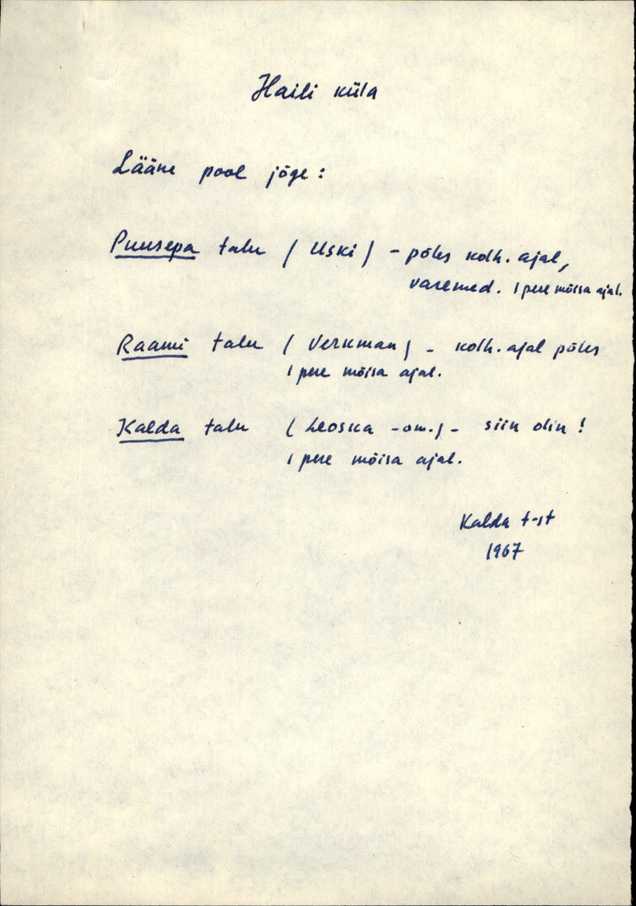 Haili küla
Lääne pool jõge:
Puusepa talu (Uski) - põles kolh. ajal,
varemed. 1 pere mõisa ajal.
Raami talu (Verkman) - kolh. ajal põles
1 pere mõisa ajal.
Kalda talu (Leoska -om.) - siin olin!
1 pere mõisa ajal.
Kalda t-st
1967